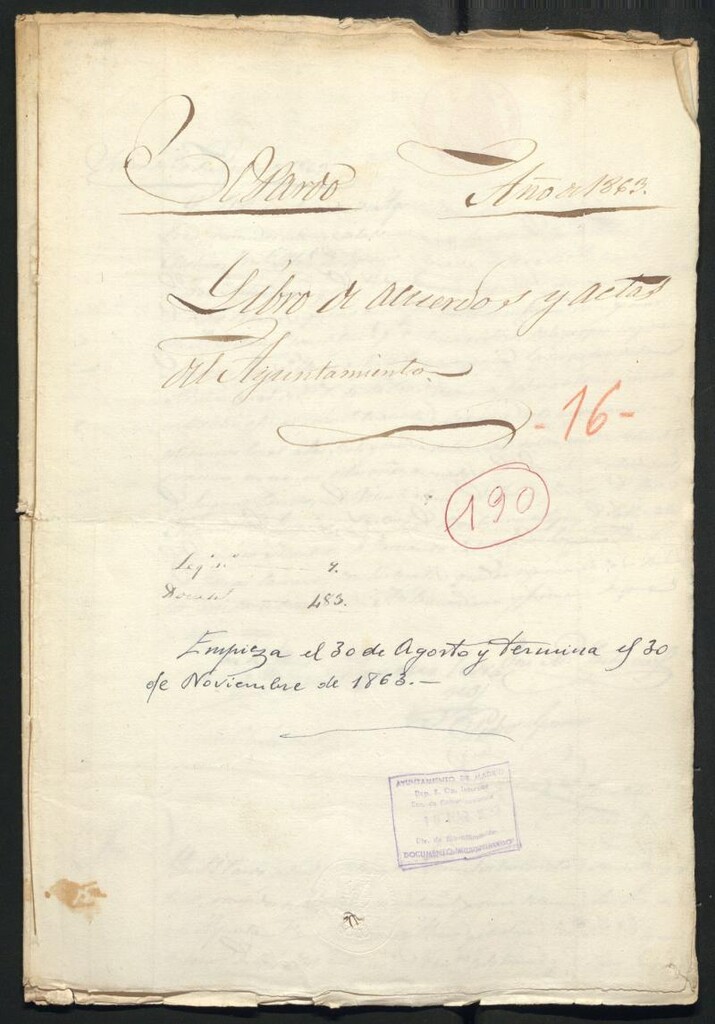 El Pardo Año de 1863.
Libro de acuerdos y actas
del Ayuntamiento
-16-
190
Leg.º n.º
483.
Empieza el 30 de Agosto y termina el 30
de Noviembre de 1863.—
AYUNTAMIENTO DE MADRID
DOCUMENTO MICROFILMADO